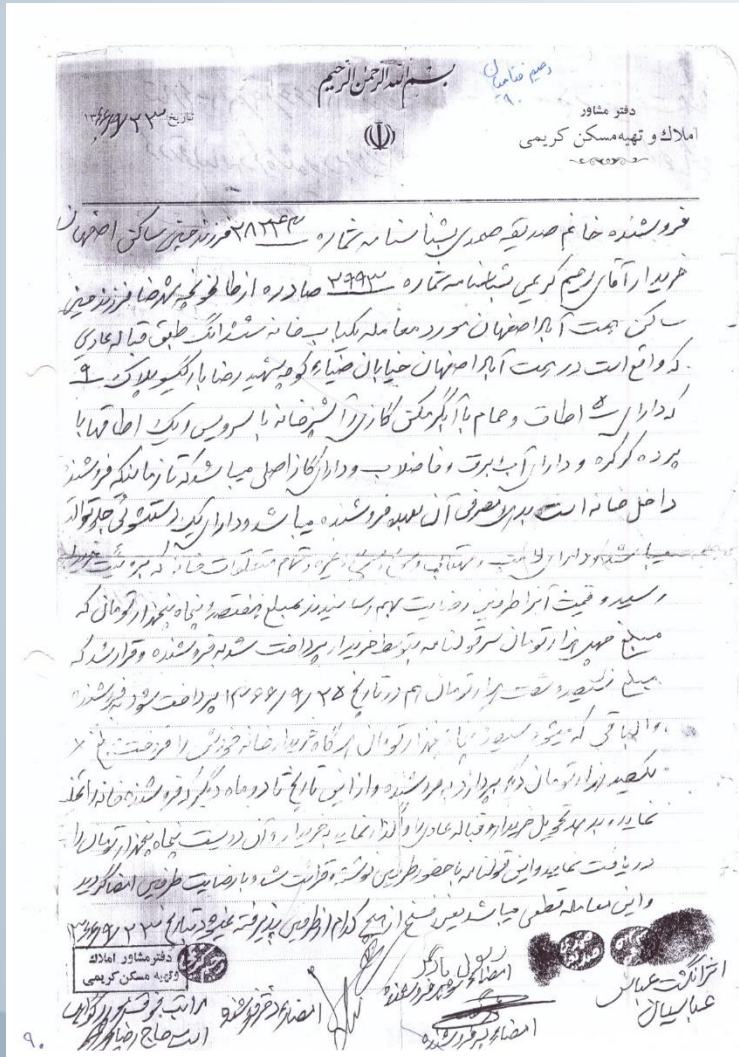 بسم الله الرحمن الرحيم
رحیم
۹۰
دفتر مشاور
املاك و تهیه مسکن کریمی
تاریخ ۱۳۶۶/۹/۲۳
فروشنده خانم صدیقه صمدی بشناسنامه شماره فرزند حسین ساکن اصفهان
خریدار آقای رحیم کریمی بشناسنامه شماره ۲۹۹۳ صادره از فرزند حسین
ساکن همت آباد اصفهان مورد معامله یکباب خانه ششدانگ طبق قباله عادی
که واقع است در همت آباد اصفهان خیابان کوچه شهید رضا پلاک ۹
که دارای ۵ اطاق و حمام با آبگرمکن گازی و آشپزخانه با سرویس و یک اطاقها با
پرده کرکره و دارای آب برق و فاضلاب و دارای گاز اصلی میباشد که تا زمانیکه فروشنده
داخل خانه است بدهی مصرفی آن بعهده فروشنده میباشد و دارای یک دستشوئی جلو توالت
میباشد و دارای لامپ و مهتابی و غیره و تمام متعلقات خانه که برویت خریدار
رسید و قیمت آن را طرفین رضایت بهم رسانیدند بمبلغ هفتصد و پنجاه پنجهزار تومان که
مبلغ چهل هزار تومان سر قولنامه بتوسط خریدار پرداخت شد به فروشنده و قرار شد که
مبلغ سیصد و شصت هزار تومان هم در تاریخ ۱۳۶۶/۹/۲۵ پرداخت شود به فروشنده
والباقی که میشود سیصد و پنجاه پنجهزار تومان هرگاه خریدار خانه خودش را فروخت مبلغ
یکصد هزار تومان دیگر بپردازد به فروشنده و از این تاریخ تا دو ماه دیگر که فروشنده خانه را تخلیه
نماید و بدهد تحویل خریدار و قباله عادی را واگذار نماید به خریدار و آن دویست پنجاه پنجهزار تومان را
دریافت نماید و این قولنامه با حضور طرفین نوشته و قرائت شد و با رضایت طرفین امضا گردید
و این معامله قطعی میباشد یعنی فسخ از هیچ کدام از طرفین پذیرفته نمیشود بتاریخ ۱۳۶۶/۹/۲۳
دفتر مشاور املاك
و تهیه مسکن کریمی
اثر انگشت عباس
عباسیان
امضاء شوهر فروشنده
امضاء پسر فروشنده
امضاء دختر فروشنده
مراتب فوق
است حاج رضا
۹۰